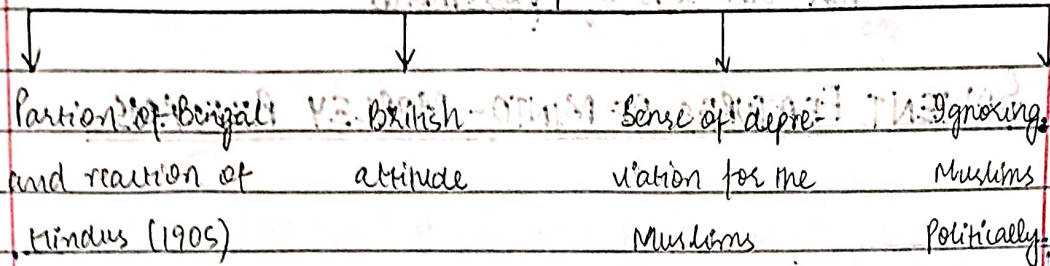 Partion of Bengal
and reaction of
Hindus (1905)
British
attitude
Sense of depre-
viation for the
Muslims
Ignoring
Muslims
Politically.